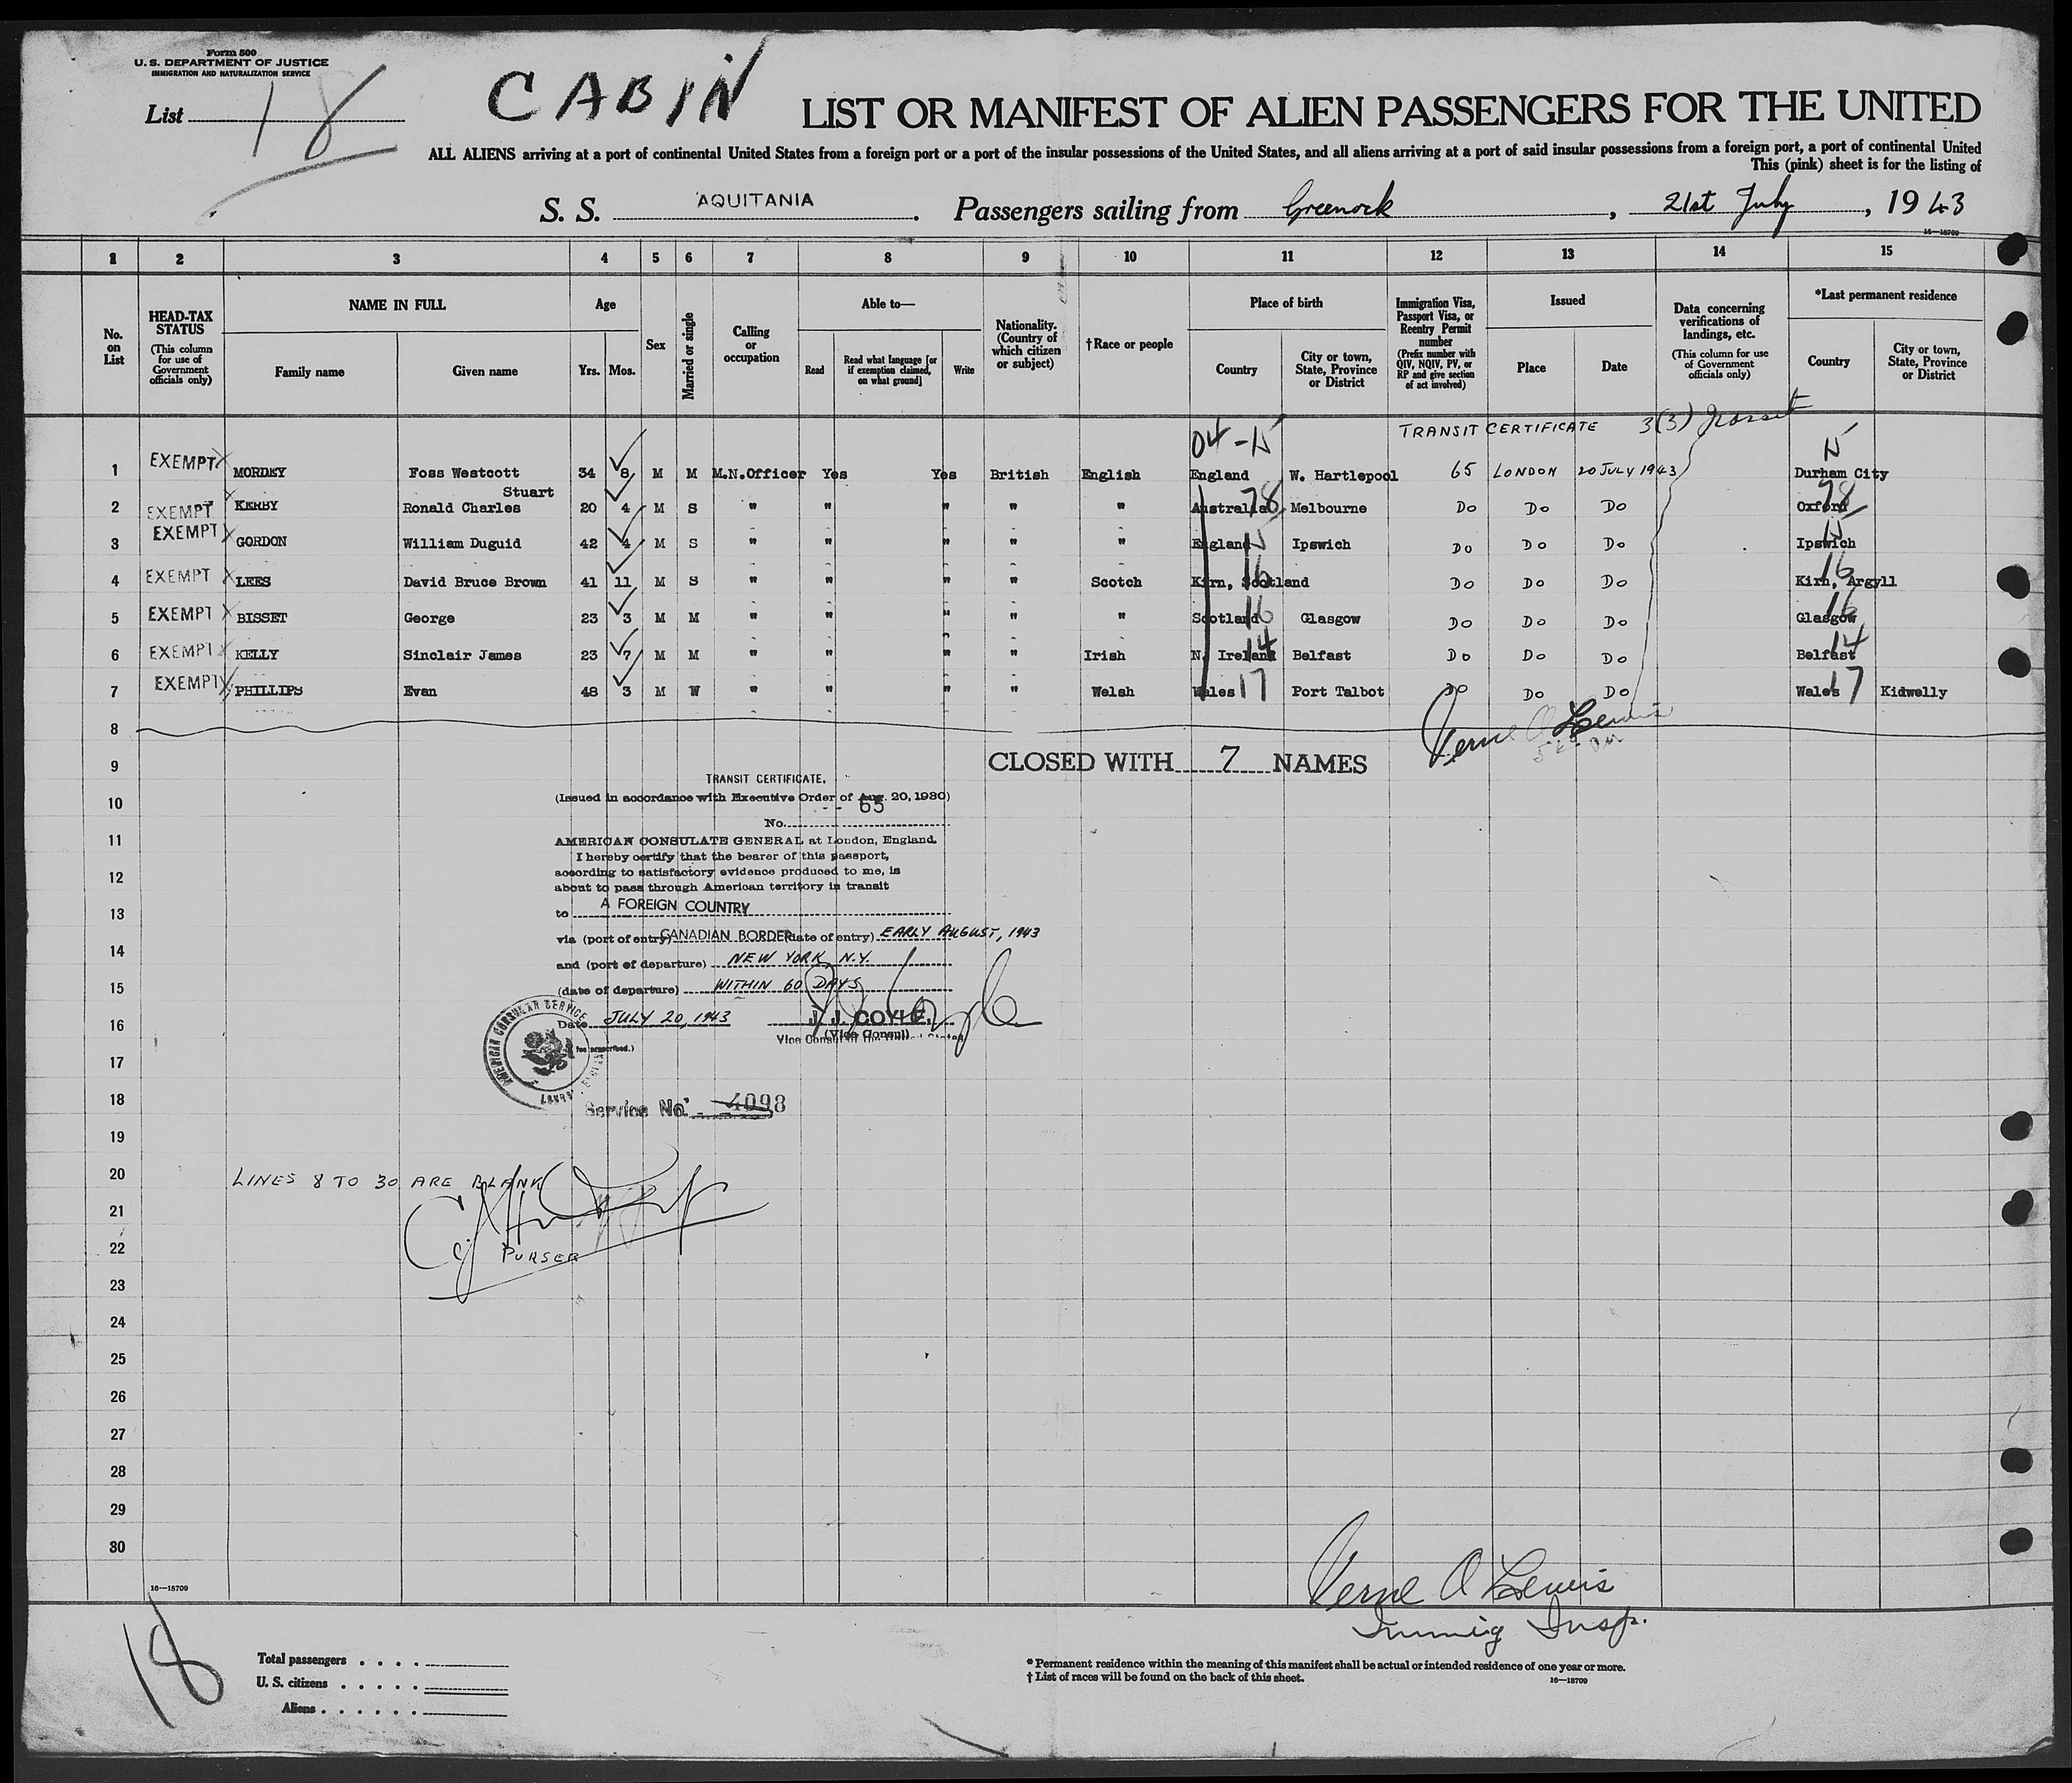 Form 500
U. S. DEPARTMENT OF JUSTICE
IMMIGRATION AND NATURALIZATION SERVICE
List 18
CABIN
LIST OR MANIFEST OF ALIEN PASSENGERS FOR THE UNITED
ALL ALIENS arriving at a port of continental United States from a foreign port or a port of the insular possessions of the United States, and all aliens arriving at a port of said insular possessions from a foreign port, a port of continental United
This (pink) sheet is for the listing of
S. S. AQUITANIA. Passengers sailing from Greenock, 21st July, 1943
16—18709
1 2 3 4 5 6 7 8 9 10 11 12 13 14 15
No. on List
HEAD-TAX STATUS (This column for use of Government officials only)
NAME IN FULL Family name Given name
Age Yrs. Mos.
Sex
Married or single
Calling or occupation
Able to— Read Read what language [or if exemption claimed, on what ground] Write
Nationality. (Country of which citizen or subject)
†Race or people
Place of birth Country City or town, State, Province or District
Immigration Visa, Passport Visa, or Reentry Permit number (Prefix number with QIV, NQIV, PV, or RP and give section of act involved)
Issued Place Date
Data concerning verifications of landings, etc. (This column for use of Government officials only)
*Last permanent residence Country City or town, State, Province or District
04-15 TRANSIT CERTIFICATE 3(3) Transit 15
1 EXEMPT MORDEY Foss Westcott 34 8 M M M.N.Officer Yes Yes British English England W. Hartlepool 65 LONDON 20 JULY 1943 Durham City
2 EXEMPT KERBY Ronald Charles Stuart 20 4 M S " " " " " Australia 78 Melbourne Do Do Do Oxford 78
3 EXEMPT GORDON William Duguid 42 4 M S " " " " " England 15 Ipswich Do Do Do Ipswich 15
4 EXEMPT LEES David Bruce Brown 41 11 M S " " " " Scotch Kirn, Scotland 16 Do Do Do Kirn, Argyll 16
5 EXEMPT BISSET George 23 3 M M " " " " " Scotland 16 Glasgow Do Do Do Glasgow 16
6 EXEMPT KELLY Sinclair James 23 7 M M " " " " Irish N. Ireland 14 Belfast Do Do Do Belfast 14
7 EXEMPT PHILLIPS Evan 48 3 M W " " " " Welsh Wales 17 Port Talbot Do Do Do Wales 17 Kidwelly
8
Verne O Lewis
9
CLOSED WITH 7 NAMES
TRANSIT CERTIFICATE.
(Issued in accordance with Executive Order of Aug. 20, 1930)
10
No. 65
11
AMERICAN CONSULATE GENERAL at London, England.
I hereby certify that the bearer of this passport,
according to satisfactory evidence produced to me, is
12
about to pass through American territory in transit
13
to A FOREIGN COUNTRY
via (port of entry) CANADIAN BORDER (date of entry) EARLY AUGUST, 1943
14
and (port of departure) NEW YORK, N.Y.
15
(date of departure) WITHIN 60 DAYS
16
Date JULY 20, 1943 J. J. COYLE.
(Vice Consul)
Vice Consul of the United States
fee prescribed.)
AMERICAN CONSULAR SERVICE
17
18
Service No. 4098
19
20
LINES 8 TO 30 ARE BLANK
21
22
PURSER
23
24
25
26
27
28
29
30
Verne O Lewis
Immig Insp.
16—18709
18
Total passengers
U. S. citizens
Aliens
* Permanent residence within the meaning of this manifest shall be actual or intended residence of one year or more.
† List of races will be found on the back of this sheet.
16—18709